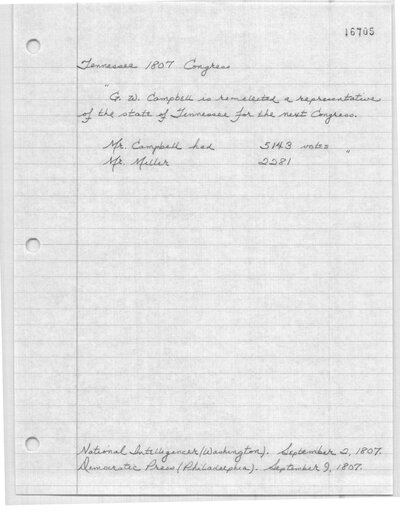 16705
Tennessee 1807 Congress
"G. W. Campbell is re-elected a representative
of the state of Tennessee for the next Congress.
Mr. Campbell had 5143 votes
Mr. Miller 2281 "
National Intelligencer (Washington). September 2, 1807.
Democratic Press (Philadelphia). September 9, 1807.